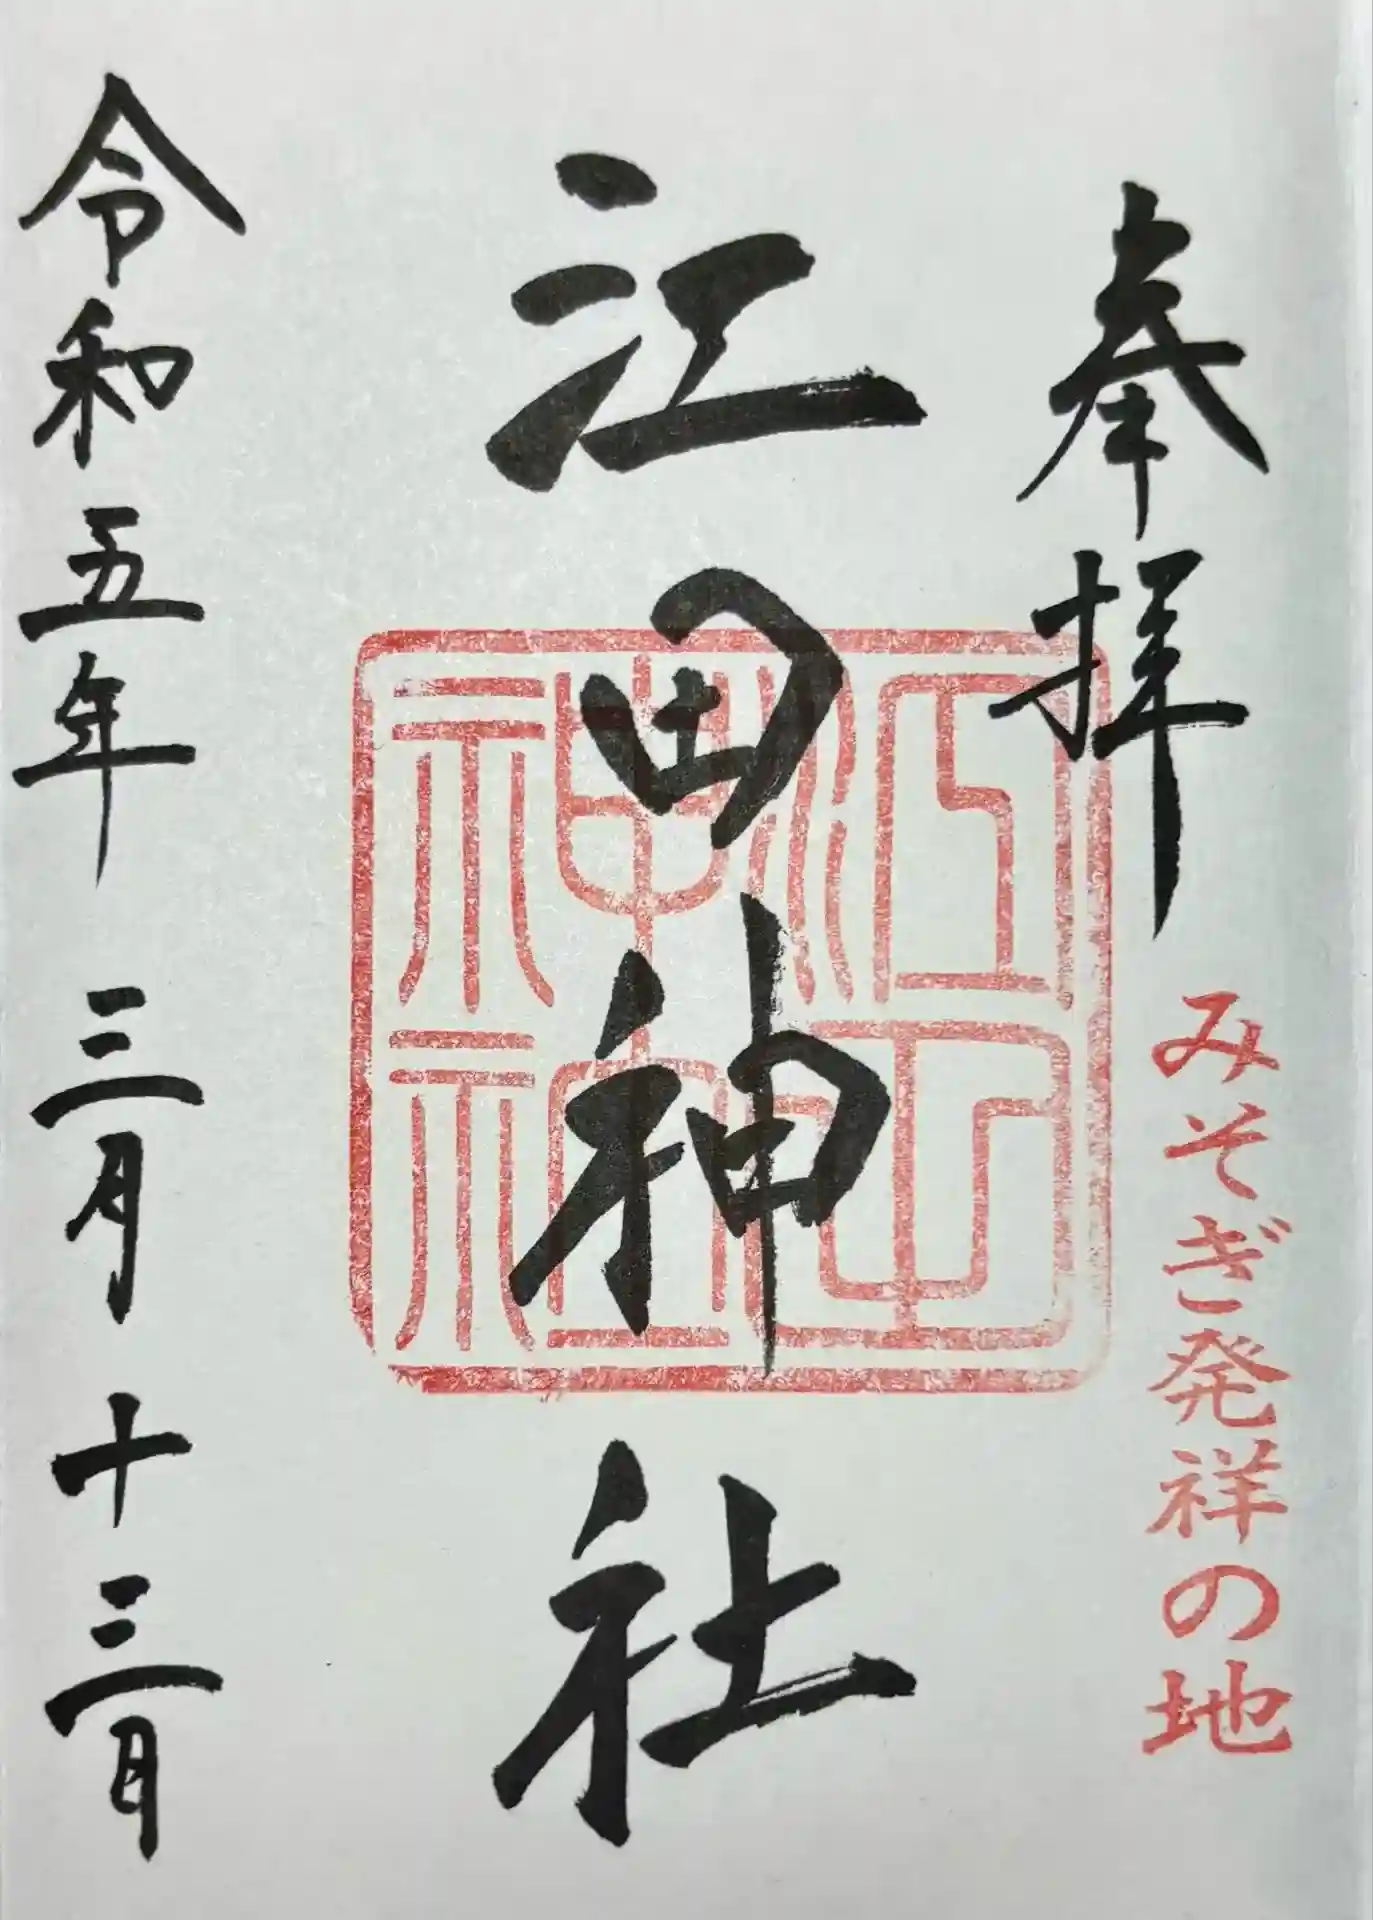 奉拝
みそぎ発祥の地
江田神社
江田神社
令和五年三月十三日